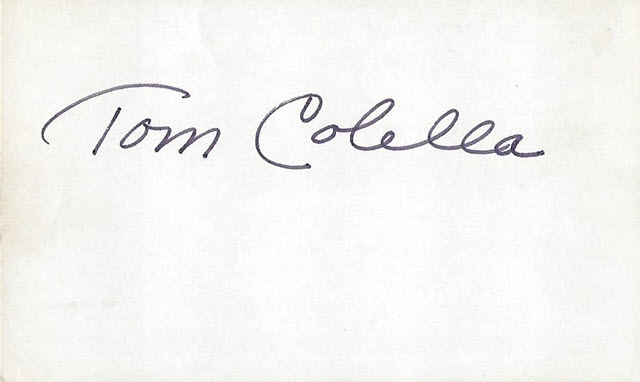 Tom Colella